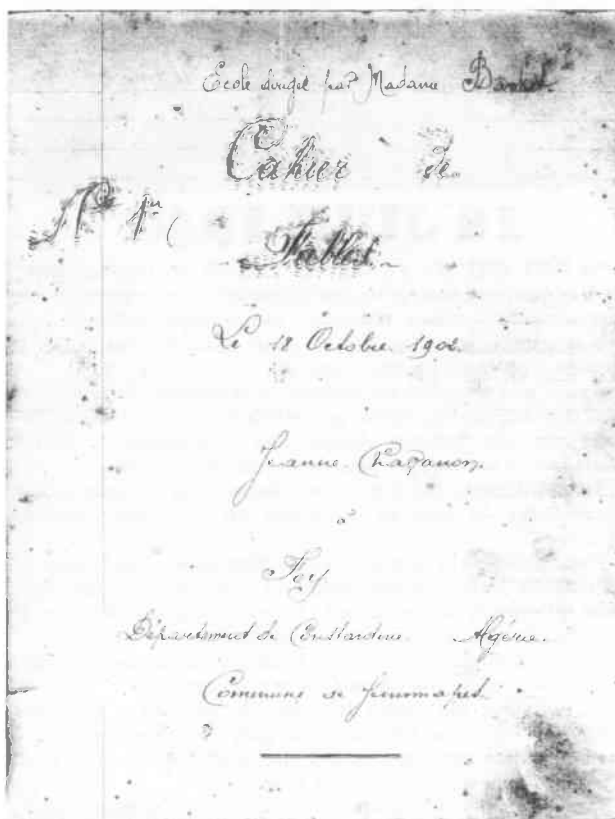 Ecole dirigée par Madame
Cahier de
N° 1er
Fables
Le 18 Octobre 1902.
Jeanne Chapanon
à
Foy
Département de Constantine Algérie.
Commune de Jemmapes